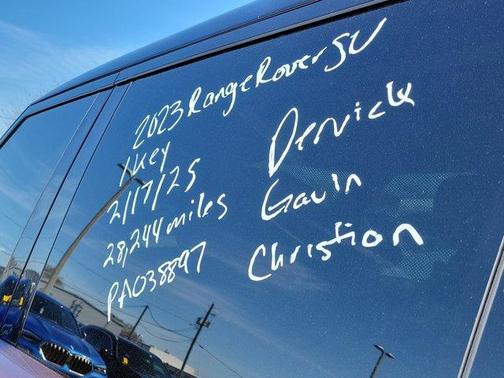 2023 Range Rover SV
1 Key
2/17/25
28,244 miles
PA038897
Derrick
Gavin
Christion